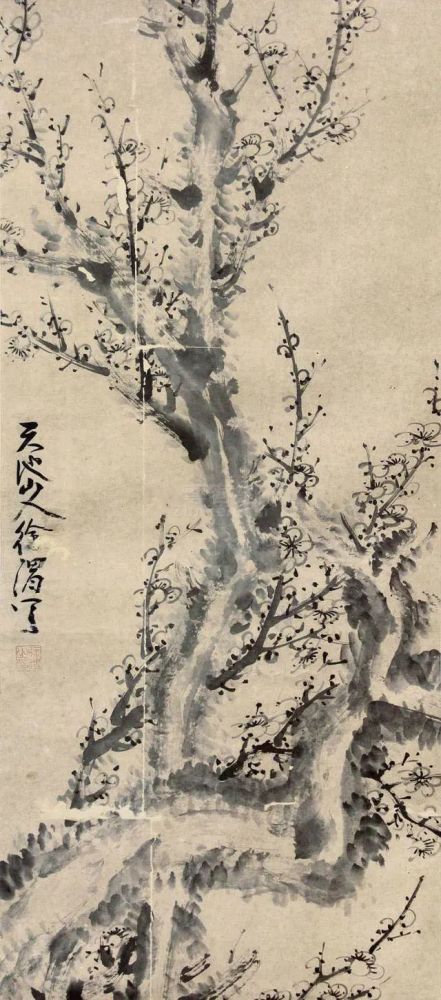 天池山人徐渭写